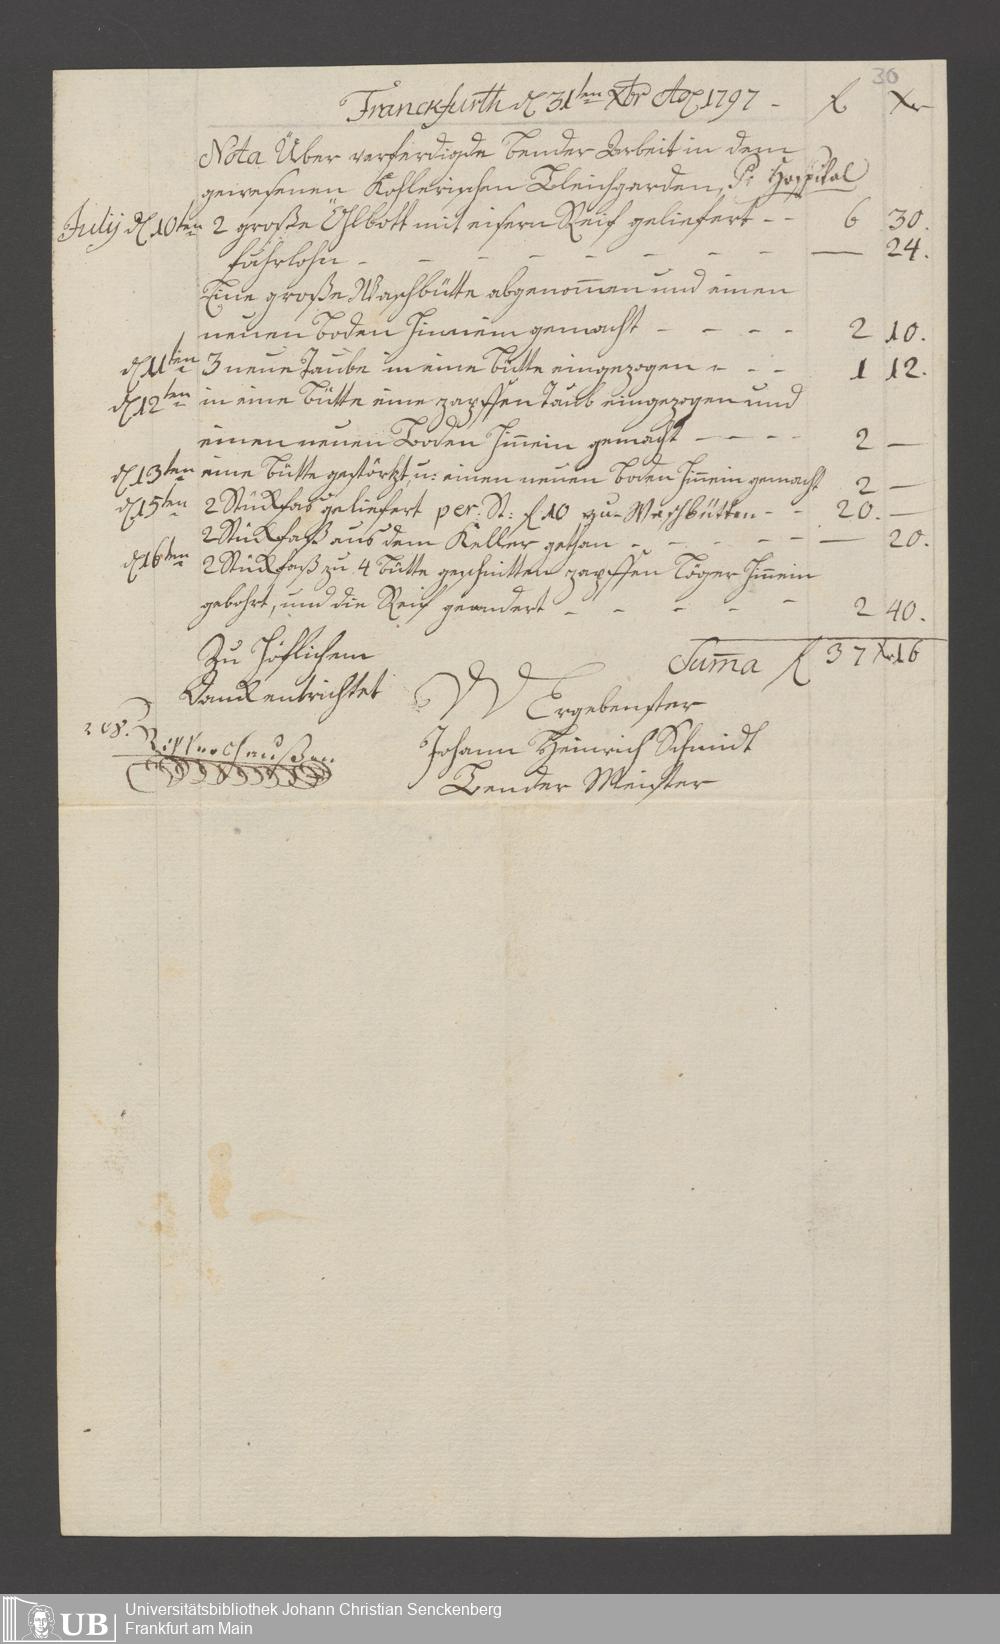 30
Franckfurth d 31ten Xbr Ao 1797 - f Xr
Nota Über verferdigde Bender Arbeit in dem
gewesenen Kohlerischen Bleichgarden, P: Hospital
Julij d 10ten 2 große Öhlbott mit eisern Reif geliefert - - 6 30.
fuhrlohn - - - - - - - - — 24.
Eine große Waschbütte abgenom̄en und einen
neuen Boden hinein gemacht - - - - 2 10.
d 11ten 3 neue Taube in eine Bütte eingezogen - - - 1 12.
d 12ten in eine Bütte eine zapffen Taub eingezogen und
einen neuen Boden hinein gemacht - - - - 2 —
d 13ten eine Bütte gestörtzt, u: einen neuen Boden hinein gemacht 2 —
d 15ten 2 Stückfas geliefert per. St: f 10 zu Waschbütten - - 20. —
2 Stückfaß aus dem Keller gethan - - - - - - — 20.
d 16ten 2 Stückfaß zu 4 Bütte geschnitten zapffen Löger hinein
gebohrt, und die Reif geandert - - - - - 2 40.
Sum̄a f 37 Xr 16
Zu höflichem
Danck entrichtet
Ergebenster
Johann Heinrich Schmidt
Bender Meister